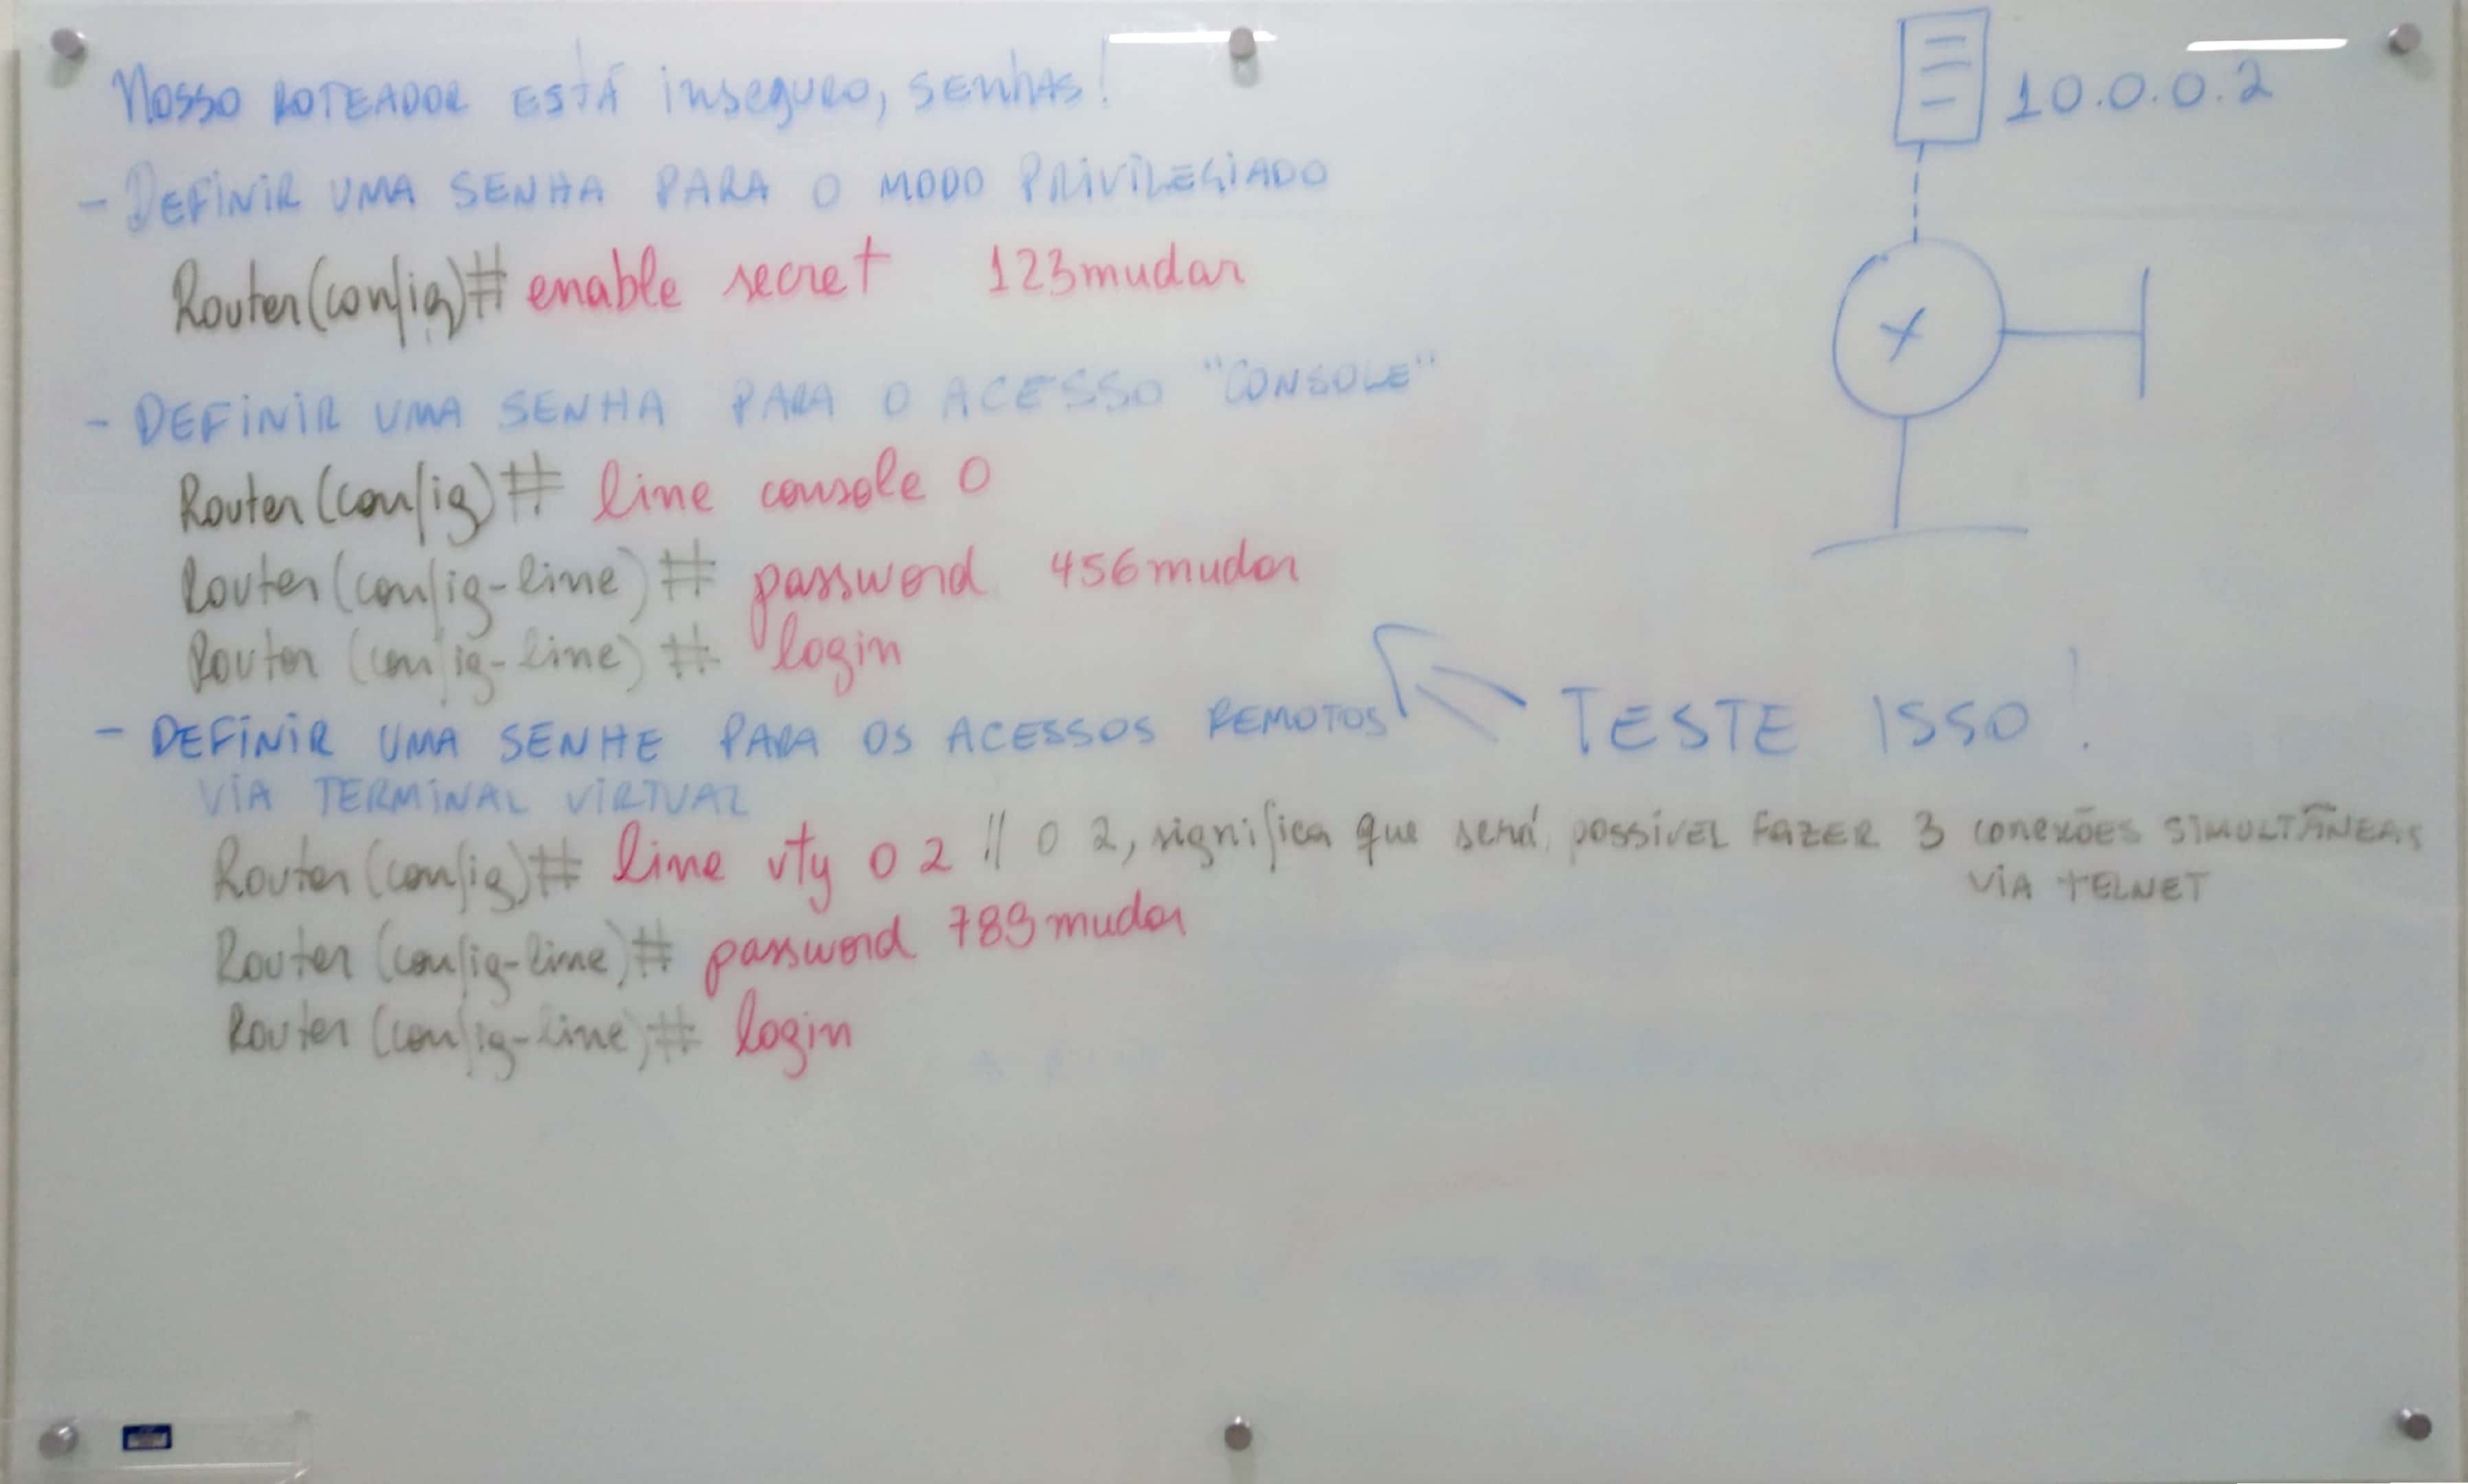 Nosso ROTEADOR ESTÁ inseguro, SENHAS!
10.0.0.2
- DEFINIR UMA SENHA PARA O MODO PRIVILEGIADO
Router(config)# enable secret 123mudar
- DEFINIR UMA SENHA PARA O ACESSO "CONSOLE"
Router(config)# line console 0
Router(config-line)# password 456mudar
Router(config-line)# login
- DEFINIR UMA SENHE PARA OS ACESSOS REMOTOS
VIA TERMINAL VIRTUAL
TESTE ISSO!
Router(config)# line vty 0 2 // 0 2, significa que será possível FAZER 3 conexões SIMULTÂNEAS
VIA TELNET
Router(config-line)# password 789mudar
Router(config-line)# login